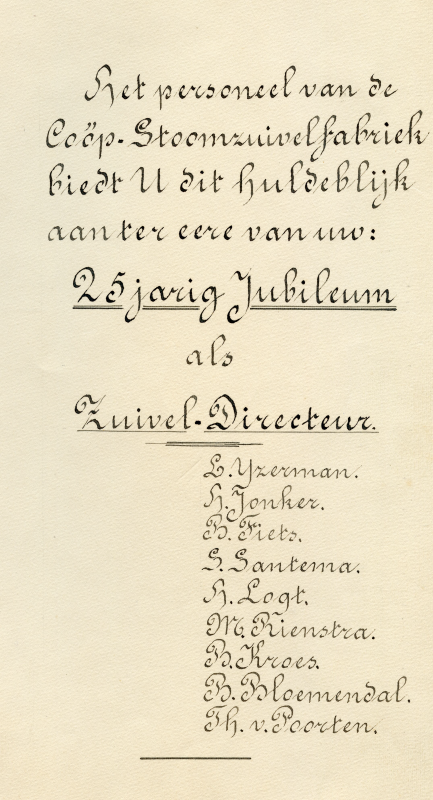 Het personeel van de
Coöp. Stoomzuivelfabriek
biedt U dit huldeblijk
aan ter eere van uw:
25 jarig Jubileum
als
Zuivel-Directeur.
L. Yzerman.
H. Jonker.
B. Fiets.
S. Santema.
H. Logt.
M. Rienstra.
B. Kroes.
B. Bloemendal.
Th. v. Poorten.